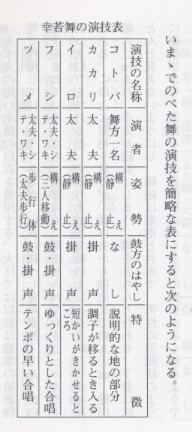 いまゝでのべた舞の演技を簡略な表にすると次のようになる。
幸若舞の演技表
演技の名称 演者 姿勢 鼓方のはやし 特徴
コトバ 舞方一名 構え(静止) なし 説明的な地の部分
カカリ 太夫 構え(静止) 掛声 調子が移るとき入る
イロ 太夫 構え(静止) 掛声 短かいがきかせるところ
フシ 太夫・シテ・ワキ 構え(三人移動) 鼓・掛声 ゆっくりとした合唱
ツメ 太夫・シテ・ワキ 歩行体(太夫歩行) 鼓・掛声 テンポの早い合唱